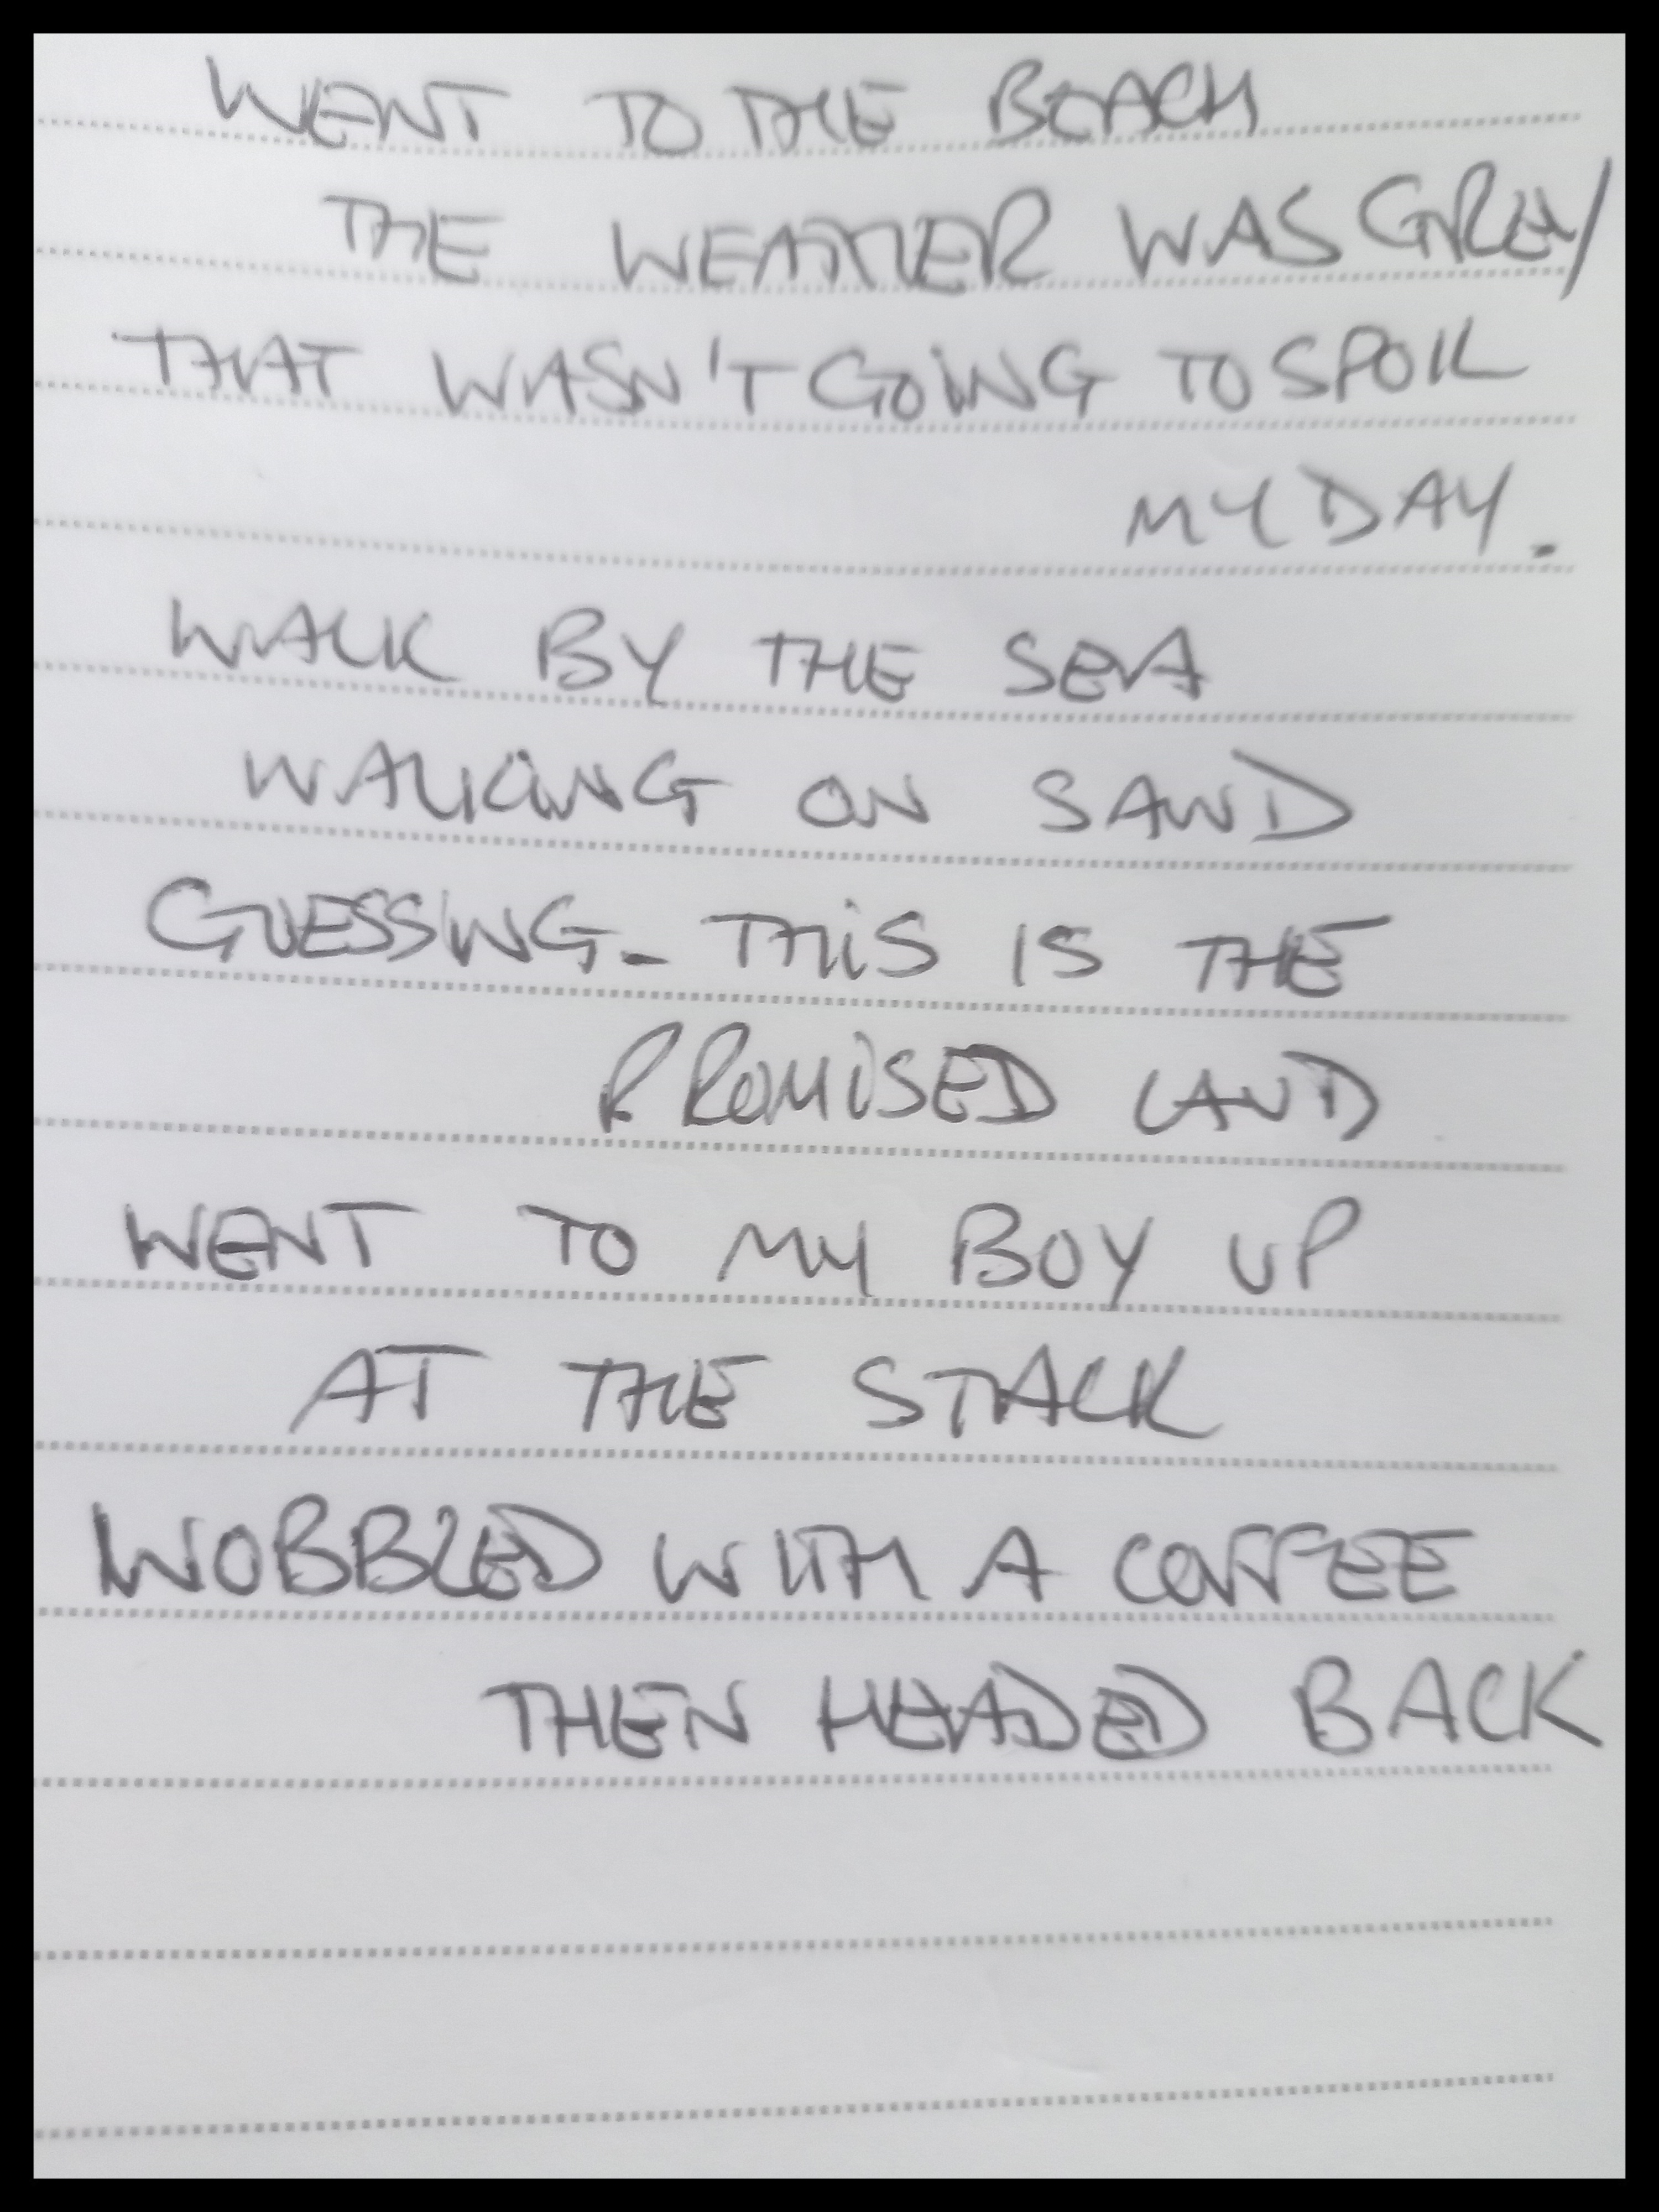 WENT TO THE BEACH
THE WEATHER WAS GREY
THAT WASN'T GOING TO SPOIL
MY DAY.
WALK BY THE SEA
WALKING ON SAND
GUESSING - THIS IS THE
PROMISED LAND
WENT TO MY BOY UP
AT THE STACK
WOBBLED WITH A COFFEE
THEN HEADED BACK